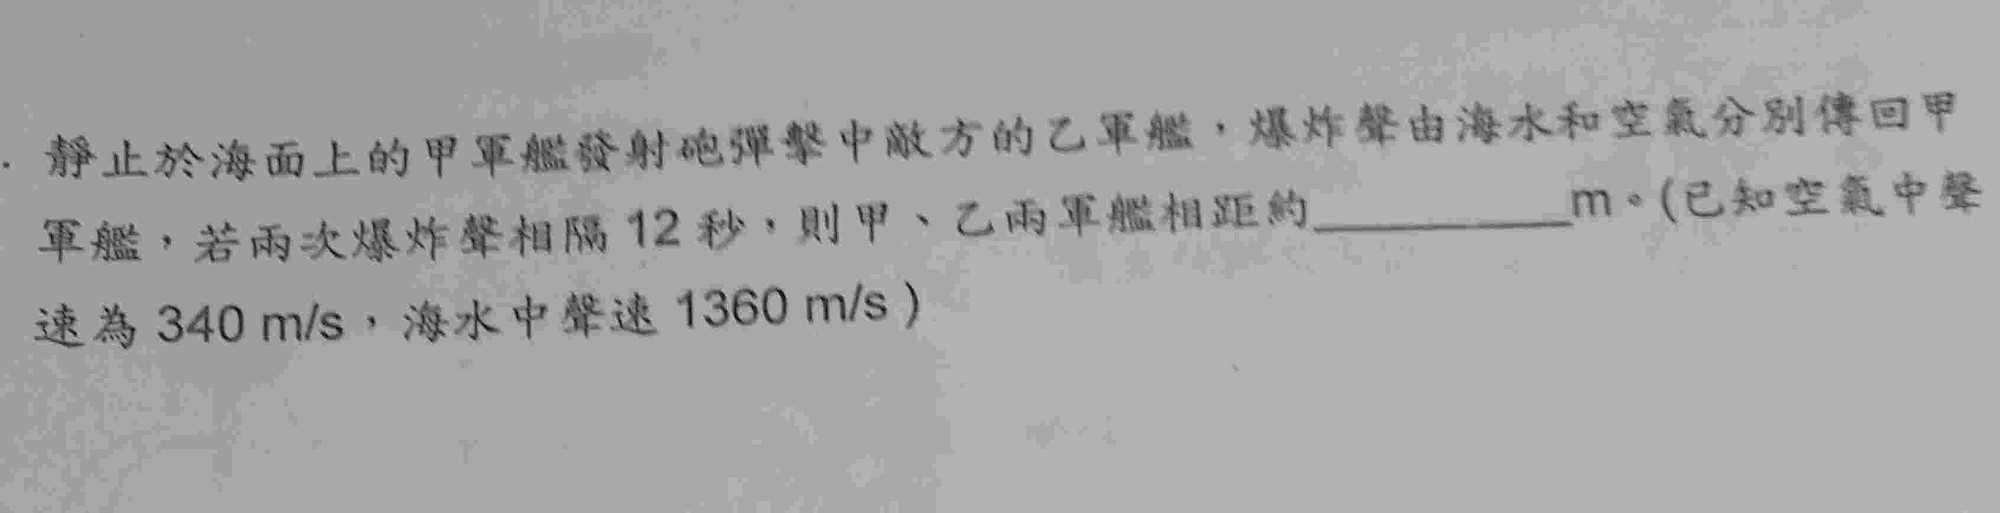 . 靜止於海面上的甲軍艦發射砲彈擊中敵方的乙軍艦，爆炸聲由海水和空氣分別傳回甲
軍艦，若兩次爆炸聲相隔 12 秒，則甲、乙兩軍艦相距約__________m。(已知空氣中聲
速為 340 m/s，海水中聲速 1360 m/s )